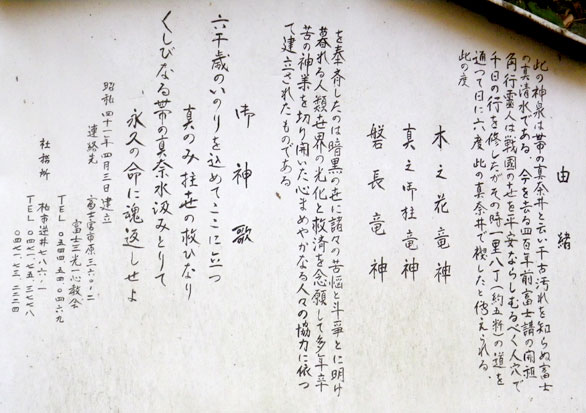 由緒
此の神泉は帯の真奈井と云い千古汚れを知らぬ富士
の真清水である。今を去る四百年前富士講の開祖
角行霊人は戦國の世を平安ならしむるべく人穴で
千日の行を修したがその時一里八丁(約五粁)の道を
通って日に六度、此の真奈井で禊したと傳えられる、
此の度
木之花竜神
真之御柱竜神
磐長竜神
を奉斉したのは暗黒の世に諸々の苦悩と斗爭とに明け
暮れる人類世界の光化と救済を念願して多年辛
苦の神業を切り開いた心まめやかなる人々の協力に依っ
て建立されたものである
御神歌
六千歳のいのりを込めてここに立つ
真のみ柱世の救ひなり
くしびなる帯の真奈水汲みとりて
永久の命に魂返しせよ
昭和四十一年四月三日建立
連絡先
富士宮市原三六〇ノ二
富士三光一心教会
TEL〇五四四五四〇四六九
社務所
柏市逆井七八六ノ一
TEL〇四七一、七五、三七七八
〇四七一、七三、二二三